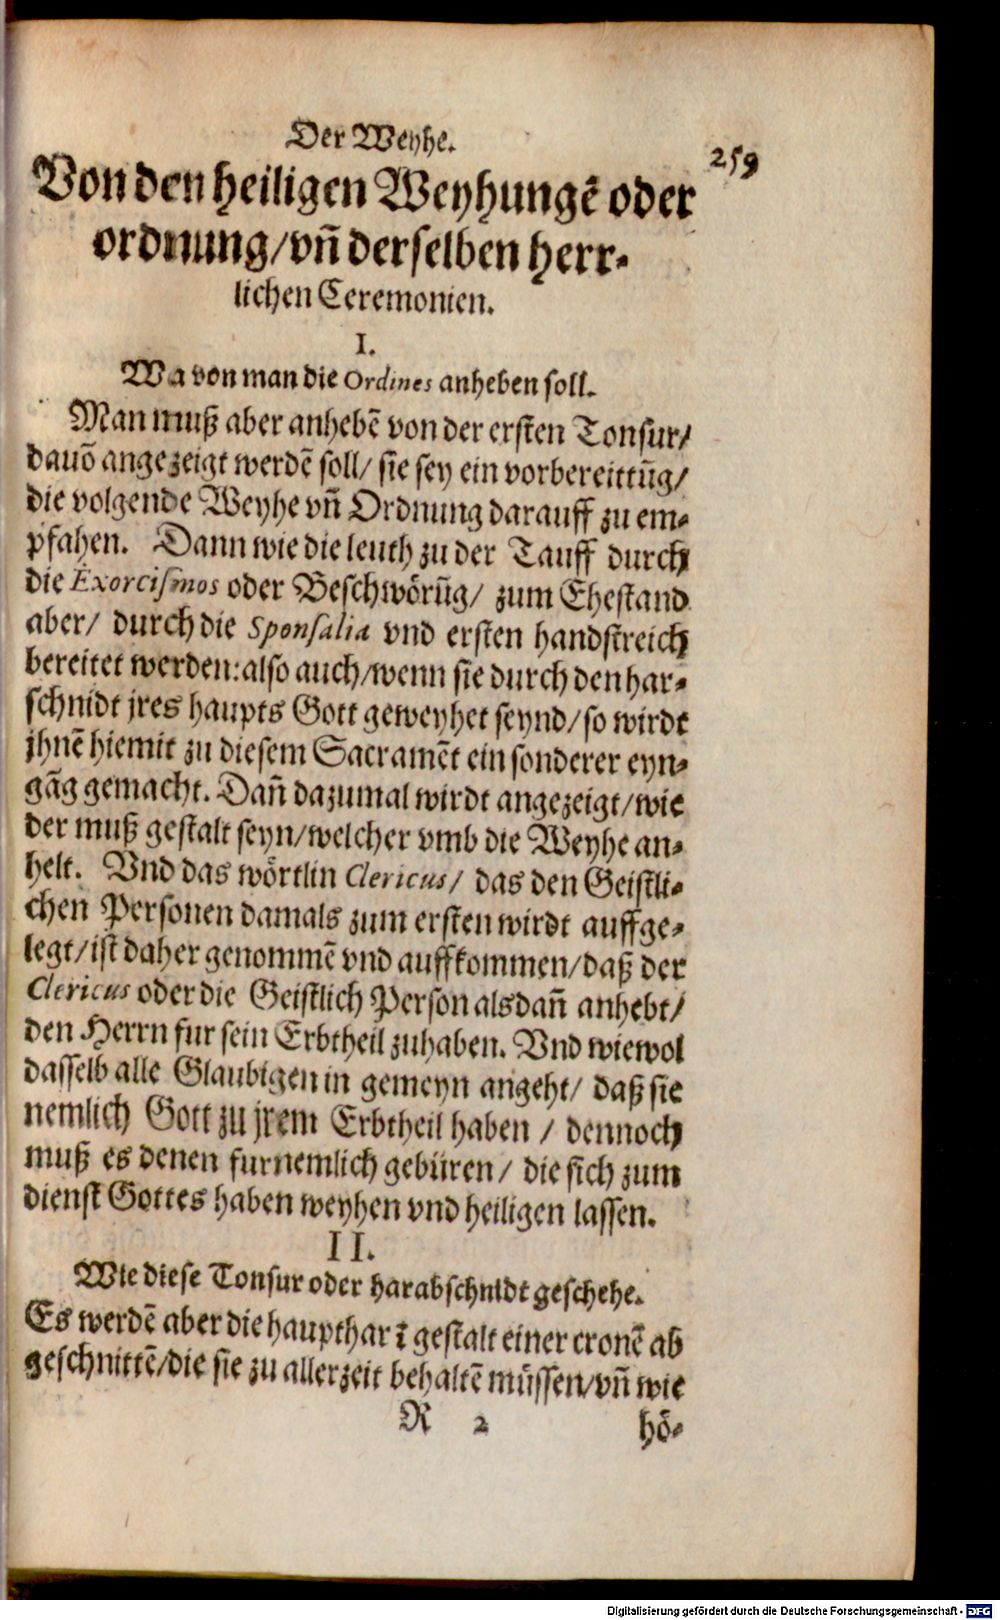 Der Weyhe.
259
Von den heiligen Weyhungẽ oder
ordnung/vñ derselben herr-
lichen Ceremonien.
I.
Wa von man die Ordines anheben soll.
Man muß aber anhebẽ von der ersten Tonsur/
dauõ angezeigt werdẽ soll/ sie sey ein vorbereittũg/
die volgende Weyhe vñ Ordnung darauff zu em-
pfahen. Dann wie die leuth zu der Tauff durch
die Exorcismos oder Beschwörũg/ zum Ehestand
aber/ durch die Sponsalia vnd ersten handstreich
bereitet werden: also auch/wenn sie durch den har-
schnidt jres haupts Gott geweyhet seynd/so wirdt
jhnẽ hiemit zu diesem Sacramẽt ein sonderer eyn-
gãg gemacht. Dañ dazumal wirdt angezeigt/wie
der muß gestalt seyn/welcher vmb die Weyhe an-
helt. Vnd das wörtlin Clericus/ das den Geistli-
chen Personen damals zum ersten wirdt auffge-
legt/ist daher genommẽ vnd auffkommen/daß der
Clericus oder die Geistlich Person alsdañ anhebt/
den Herrn fur sein Erbtheil zuhaben. Vnd wiewol
dasselb alle Glaubigen in gemeyn angeht/ daß sie
nemlich Gott zu jrem Erbtheil haben / dennoch
muß es denen furnemlich gebüren/ die sich zum
dienst Gottes haben weyhen vnd heiligen lassen.
II.
Wie diese Tonsur oder harabschnidt geschehe.
Es werdẽ aber die haupthar ĩ gestalt einer cronẽ ab
geschnittẽ/die sie zu allerzeit behaltẽ müssen/vñ wie
R 2 hö-
Digitalisierung gefördert durch die Deutsche Forschungsgemeinschaft - DFG